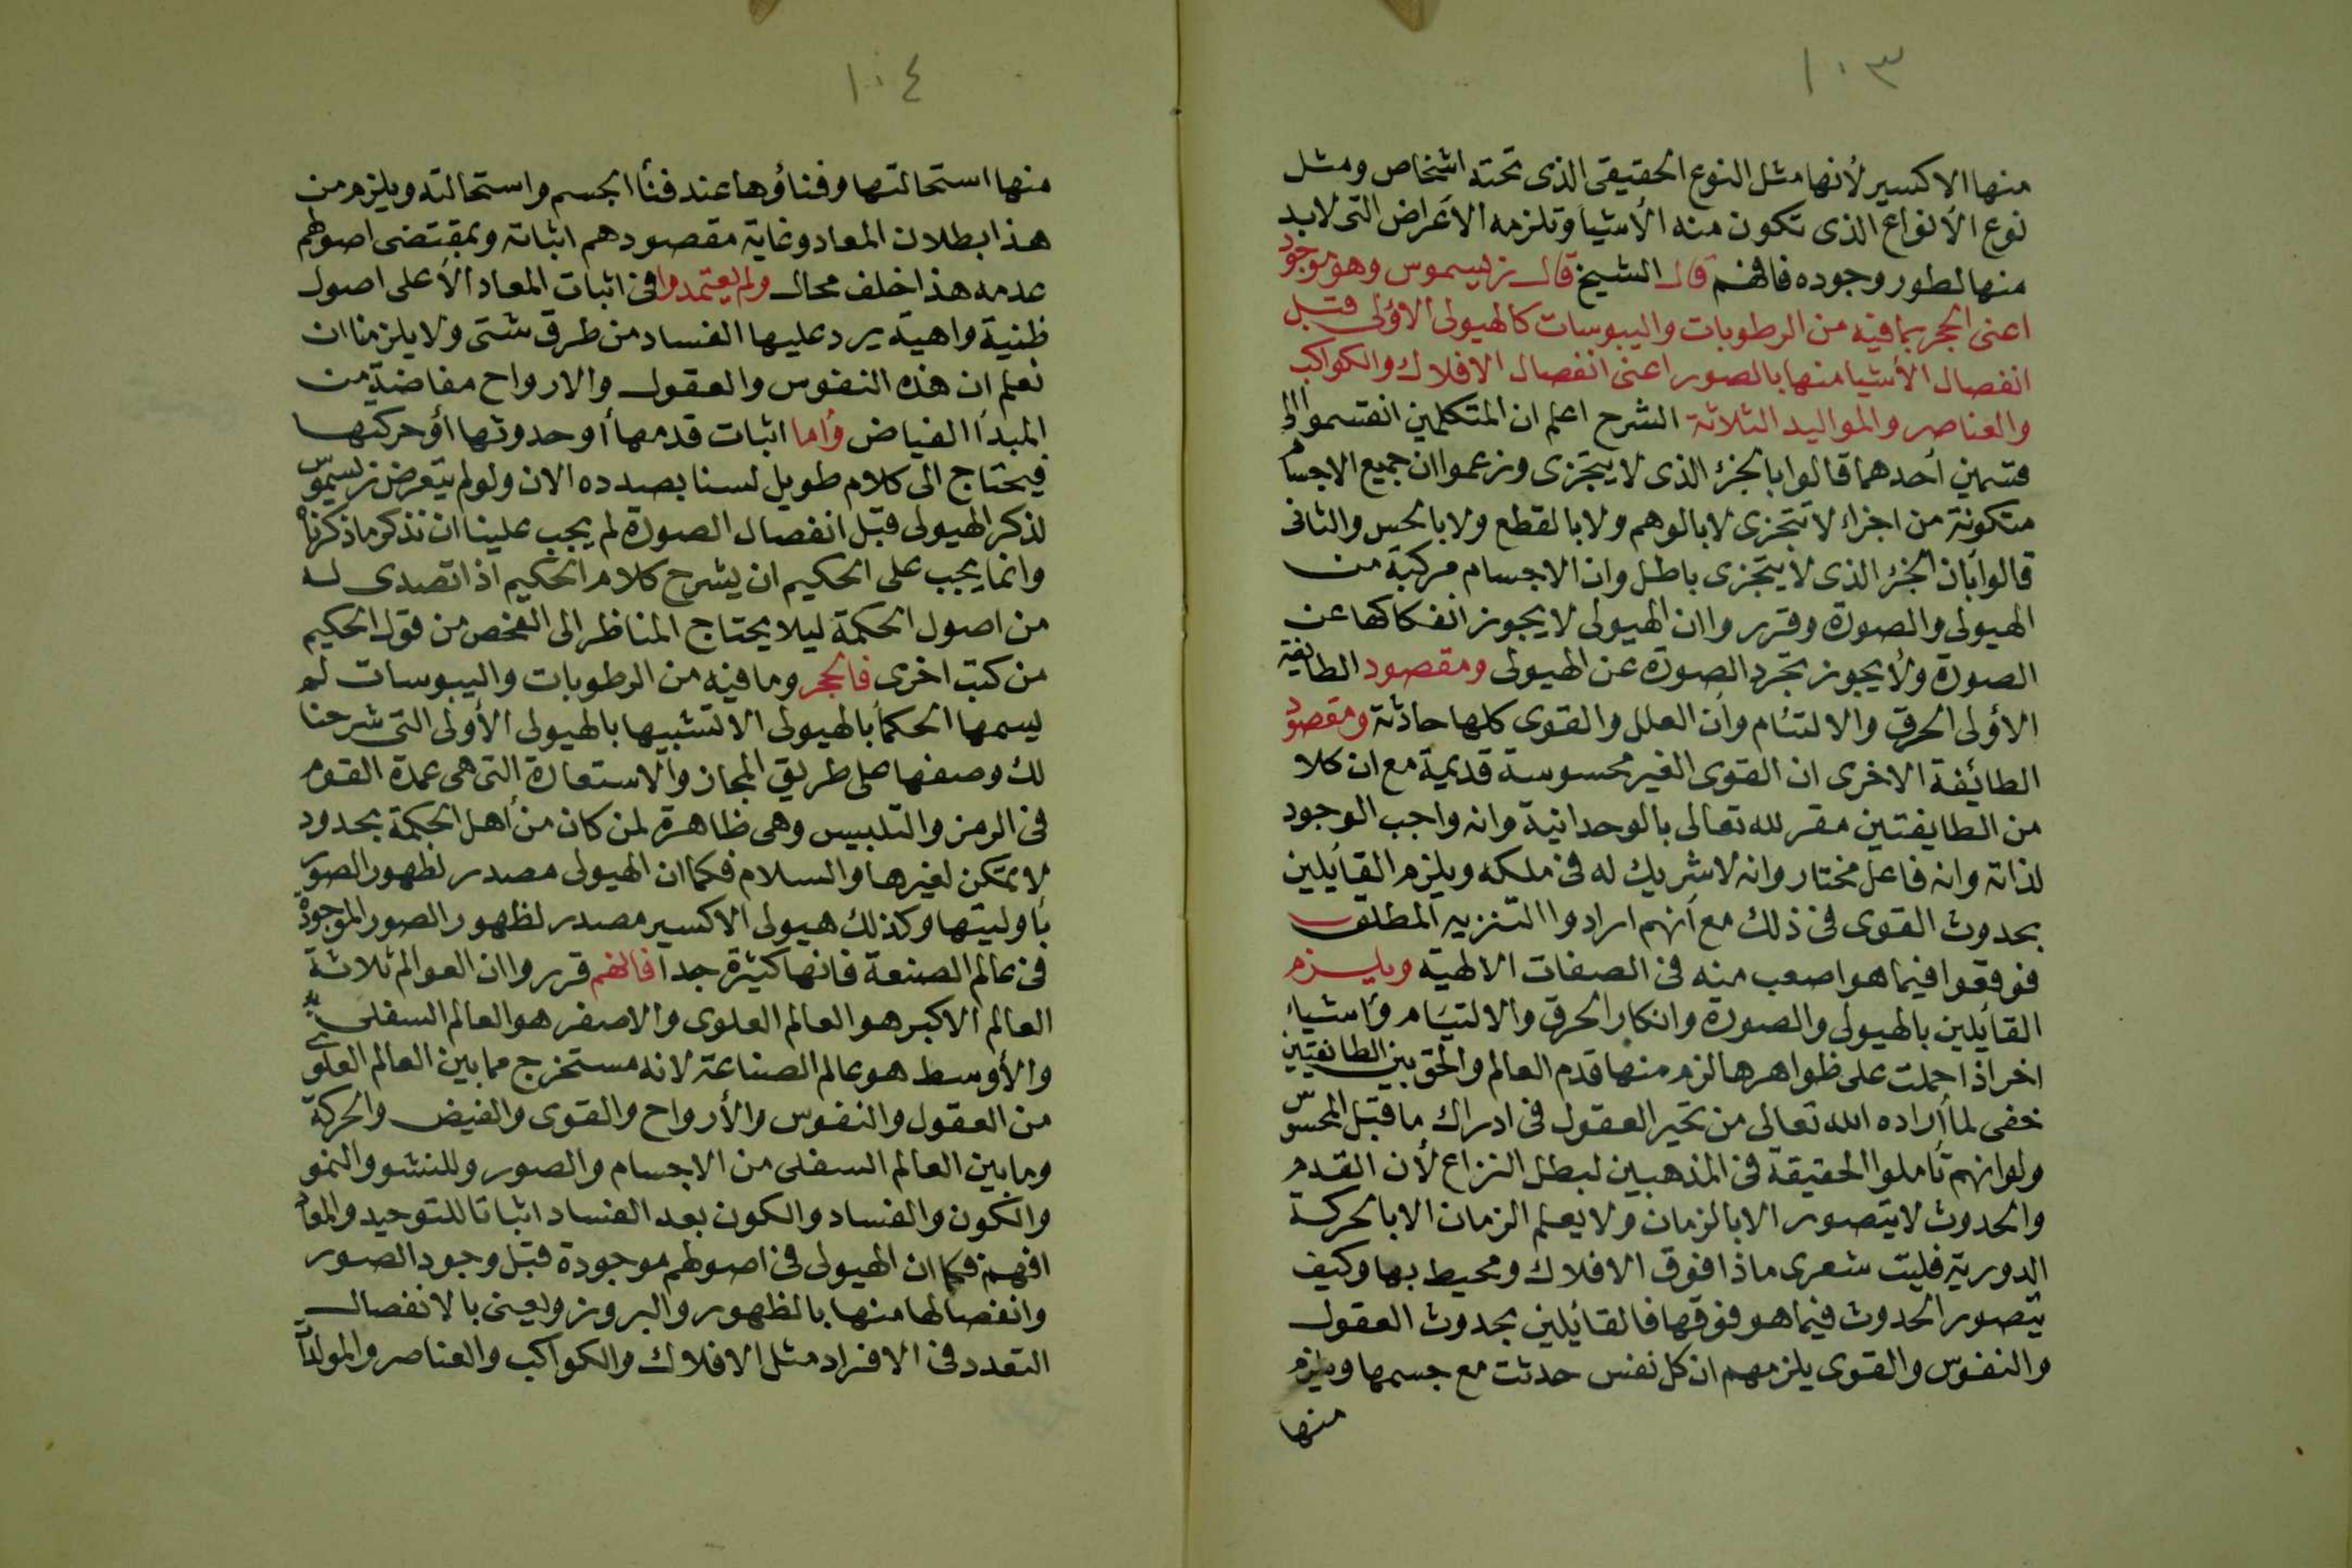 ١٠٣
منها الاكسير لأنها مثل النوع الحقيقى الذى تحته اشخاص ومثل
نوع الأنواع الذى تكون منه الأشيا وتلزمه الأعراض التى لابد
منها لطور وجوده فافهم قال الشيخ قال زيسموس وهو موجود
اعنى الحجر بما فيه من الرطوبات واليبوسات كالهيولى الاولى قبل
انفصال الأشيا منها بالصور اعنى انفصال الافلاك والكواكب
والعناصر والمواليد الثلاثة الشرح اعلم ان المتكلمين انقسموا الى
قسمين أحدهما قالوا بالجزء الذى لا يتجزى وزعموا ان جميع الاجسام
متكونة من اجزاء لا تتجزى لا بالوهم ولا بالقطع ولا بالحس والثانى
قالوا بأن الجزء الذى لا يتجزى باطل وان الاجسام مركبة من
الهيولى والصورة وقرروا ان الهيولى لا يجوز انفكاكها عن
الصورة ولا يجوز تجرد الصورة عن الهيولى ومقصود الطايفة
الأولى الخرق والالتئام وأن العلل والقوى كلها حادثة ومقصود
الطائفة الاخرى ان القوى الغير محسوسة قديمة مع ان كلا
من الطايفتين مقر لله تعالى بالوحدانية وانه واجب الوجود
لذاته وانه فاعل مختار وانه لا شريك له فى ملكه ويلزم القايلين
بحدوث القوى فى ذلك مع أنهم ارادوا التنزيه المطلق
فوقعوا فيما هو اصعب منه فى الصفات الالهية ويلزم
القائلين بالهيولى والصورة وانكار الخرق والالتيام وأشياء
اخر اذا حملت على ظواهرها لزم منها قدم العالم والحق بين الطايفتين
خفى لما أراده الله تعالى من تحير العقول فى ادراك ما قبل المحسوس
ولو انهم تأملوا الحقيقة فى المذهبين لبطل النزاع لأن القدم
والحدوث لا يتصور الا بالزمان ولا يعلم الزمان الا بالحركة
الدورية فليت شعرى ماذا فوق الافلاك ومحيط بها وكيف
يتصور الحدوث فيما هو فوقها فالقايلين بحدوث العقول
والنفوس والقوى يلزمهم ان كل نفس حدثت مع جسمها ويلزم
منها
١٠٤
منها استحالتها وفناؤها عند فنأ الجسم واستحالته ويلزم من
هذا بطلان المعاد وغاية مقصودهم اثباته وبمقتضى اصولهم
عدمه هذا خلف محال ولم يعتمدوا فى اثبات المعاد الأ على اصول
ظنية واهية يرد عليها الفساد من طرق شتى ولا يلزمنا ان
نعلم ان هذه النفوس والعقول والارواح مفاضة من
المبدأ الفياض وأما اثبات قدمها أو حدوثها أو حركتها
فيحتاج الى كلام طويل لسنا بصدده الان ولو لم يتعرض زيسموس
لذكر الهيولى قبل انفصال الصورة لم يجب علينا ان نذكر ما ذكرناه
وانما يجب على الحكيم ان يشرح كلام الحكيم اذا تصدى له
من اصول الحكمة ليلا يحتاج المناظر الى الفحص من قول الحكيم
من كتب اخرى فالحجر وما فيه من الرطوبات واليبوسات لم
يسمها الحكمأ بالهيولى الا تشبيها بالهيولى الأولى التى شرحنا
لك وصفها على طريق المجاز والاستعارة التى هى عمدة القوم
فى الرمز والتلبيس وهى ظاهرة لمن كان من أهل الحكمة بحدود
لا يمكن لغيرها والسلام فكما ان الهيولى مصدر لظهور الصور
بأوليتها وكذلك هيولى الاكسير مصدر لظهور الصور الموجودة
فى عالم الصنعة فانها كثيرة جدا فافهم قرروا ان العوالم ثلاثة
العالم الاكبر هو العالم العلوى والاصغر هو العالم السفلى
والأوسط هو عالم الصناعة لانه مستخرج مما بين العالم العلوى
من العقول والنفوس والأرواح والقوى والفيض والحركة
وما بين العالم السفلى من الاجسام والصور وللنشو والنمو
والكون والفساد والكون بعد الفساد اثباتا للتوحيد والمعاد
افهم فكما ان الهيولى فى اصولهم موجودة قبل وجود الصور
وانفصالها منها بالظهور والبروز ويعنى بالانفصال
التعدد فى الافراد مثل الافلاك والكواكب والعناصر والمولدات